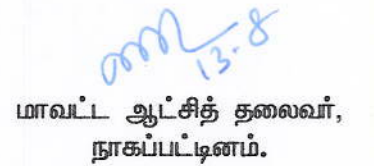 13-8
மாவட்ட ஆட்சித் தலைவர்,
நாகப்பட்டினம்.